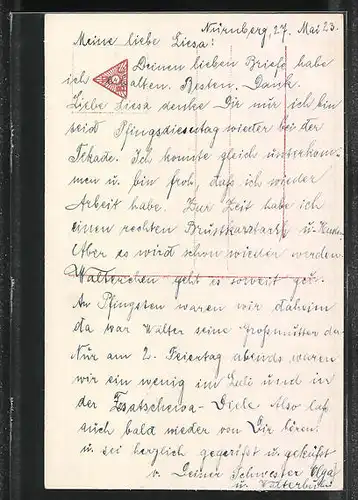 Nürnberg, 27. Mai 23.
Meine liebe Liesa:
Deinen lieben Brief habe
ich erhalten. Besten Dank.
Liebe Liesa denke Dir nur ich bin
seid Pfingsdiesestag wieder bei der
Tekade. Ich konnte gleich unterkom-
men u. bin froh, daß ich wieder
Arbeit habe. Zur Zeit habe ich
einen rechten Brustkatarrh u. Husten
Aber es wird schon wieder werden.
Walterchen geht es soweit gut.
An Pfingsten waren wir daheim
da war Walter seine Großmutter da.
Nur am 2. Feiertag abends waren
wir ein wenig im und in
der Diele. Also laß
auch bald wieder von Dir hören.
u. sei herzlich gegrüßt u. geküßt
v. Deiner Schwester Olga
u. Walterbub